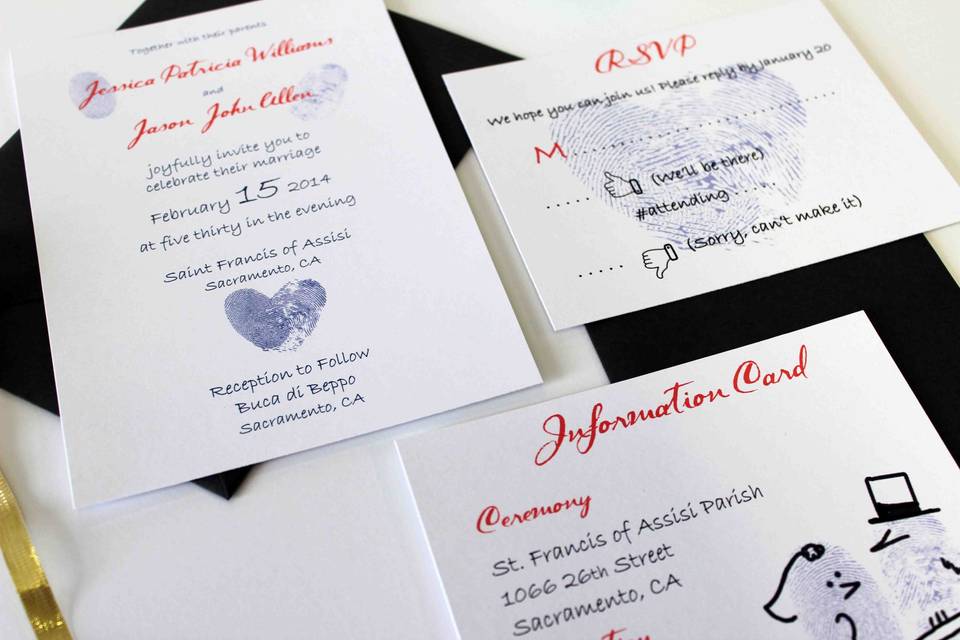 Together with their parents
Jessica Patricia Williams
and
Jason John Allen
joyfully invite you to
celebrate their marriage
February 15 2014
at five thirty in the evening
Saint Francis of Assisi
Sacramento, CA
Reception to Follow
Buca di Beppo
Sacramento, CA
RSVP
We hope you can join us! Please reply by January 20
M
(We'll be there)
#attending
(Sorry, can't make it)
Information Card
Ceremony
St. Francis of Assisi Parish
1066 26th Street
Sacramento, CA